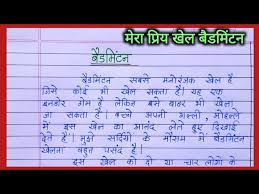 मेरा प्रिय खेल बैडमिंटन
बैडमिंटन
बैडमिंटन सबसे मनोरंजक खेल है
जिसे कोई भी खेल सकता है। यह एक
इनडोर गेम है लेकिन इसे बाहर भी खेला
जा सकता है। बच्चे अपनी गली, मोहल्ले
में इस खेल का आनंद लेते हुए दिखाई
देते हैं। मुझे सर्दियों के मौसम में बैडमिंटन
खेलना बहुत पसंद है।
इस खेल को दो या चार लोगों के